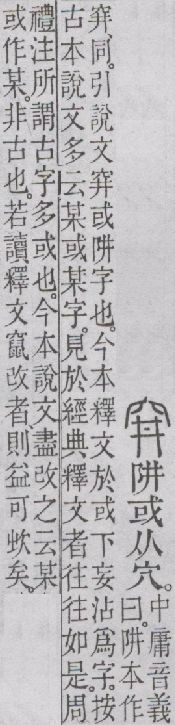 穽阱或从穴。
中庸音義
曰。阱本作
穽同。引說文穽或阱字也。今本釋文於或下妄沾爲字。按
古本說文多云某或某字。見於經典釋文者往往如是。周
禮注所謂古字多或也。今本說文盡改之云某
或作某。非古也。若讀釋文竄改者則益可矣。